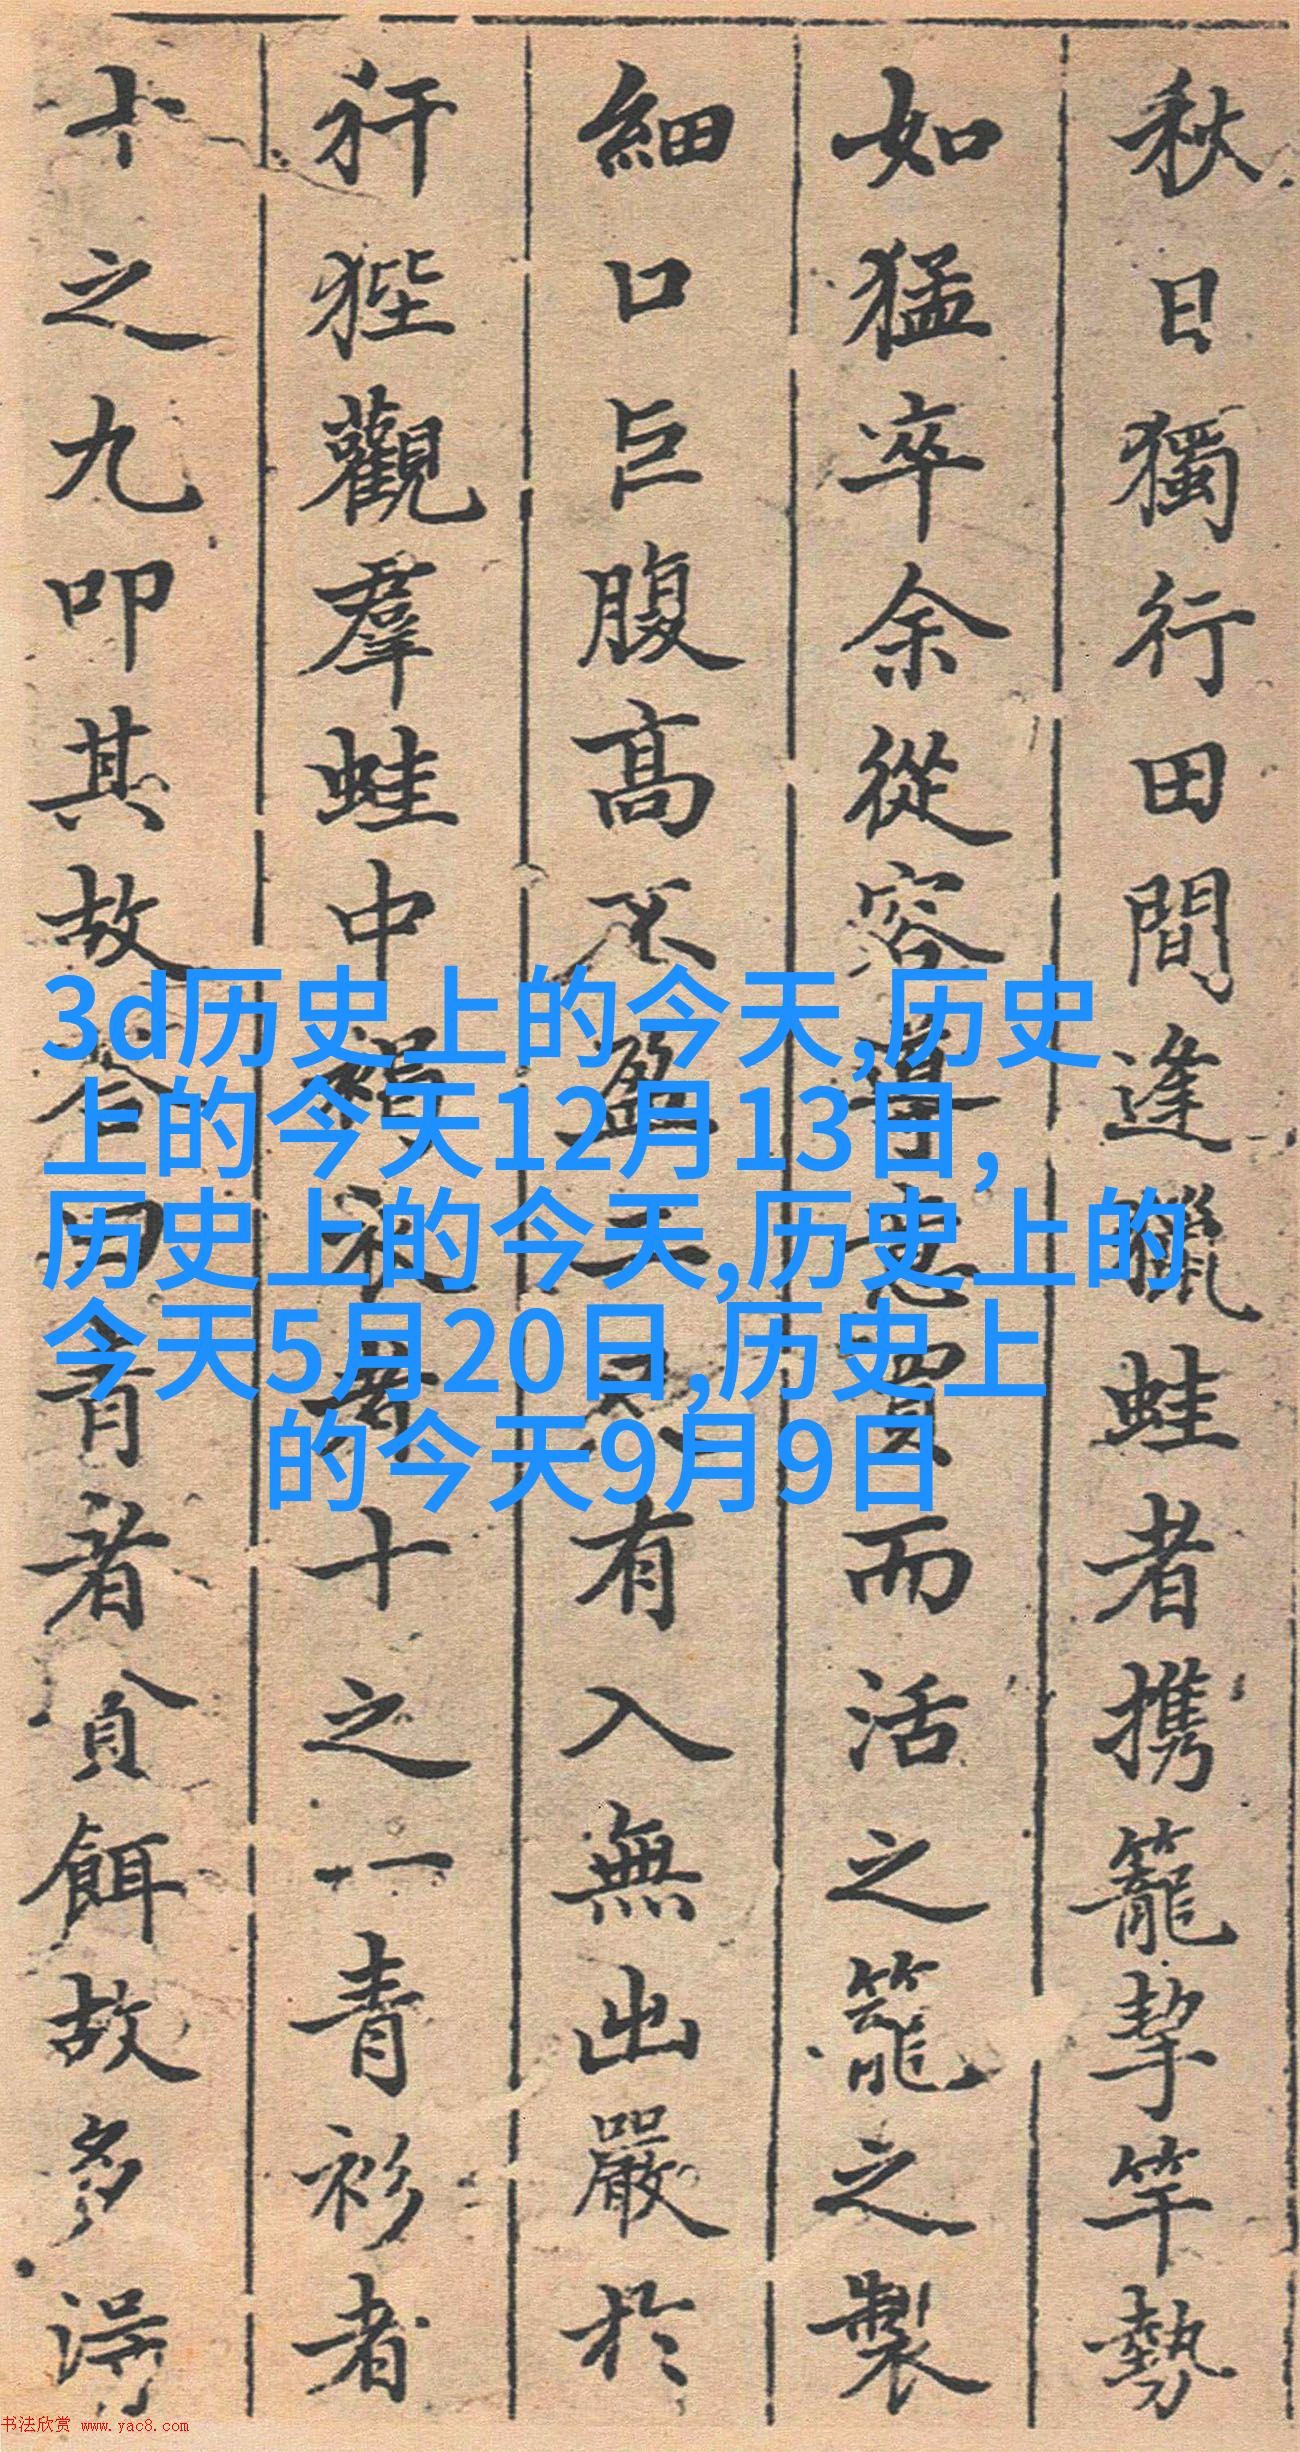 秋日獨行田間逢獵蛙者携籠挈竿勢
如猛卒余從容尊意買而活之籠之製
細口巨腹高不盈二尺有入無出嚴於
犴狴觀羣蛙中褐衣者十之一青衫者
十之九叩其故答曰青者貪餌故多得
3d历史上的今天,历史
上的今天12月13日,
历史上的今天,历史上的
今天5月20日,历史上
的今天9月9日
书法欣赏 www.yac8.com